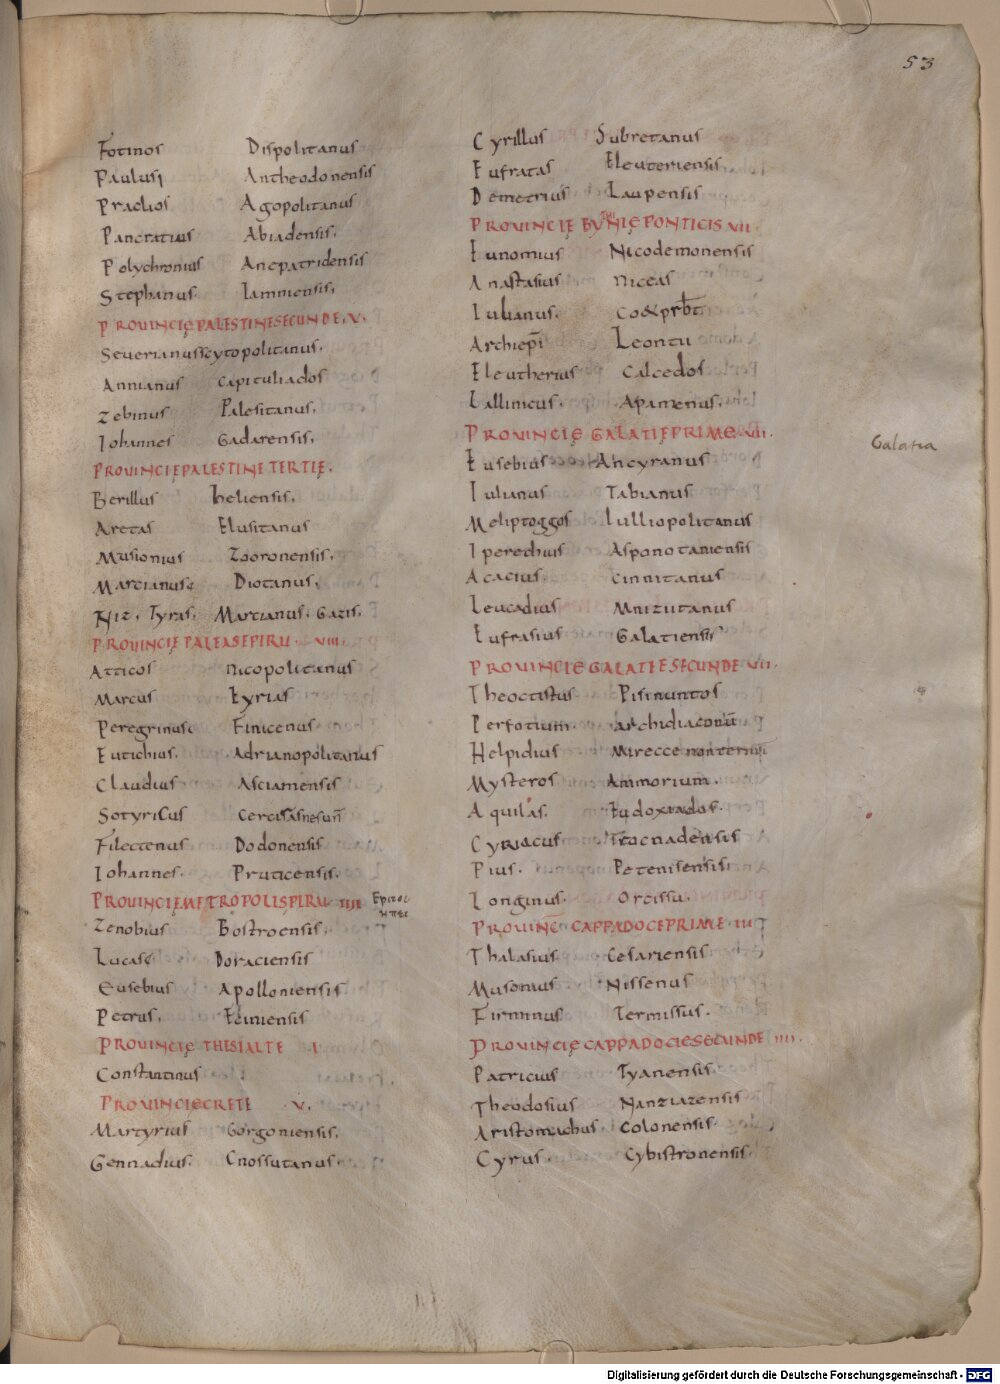 53
Fotinos Dispolitanus
Paulusi Antheodonensis
Praclios Agopolitanus
Pancratius Abiadensis.
Polychronius Anepatridensis
Stephanus. Iamniensis.
PROUINCIĘ PALESTINE SECUNDE. V.
Seuerianus scytopolitanus.
Annianus capituliados
Zebinus Palesitanus.
Iohannes Gadarensis.
PROUINCIĘ PALESTINE TERTIĘ.
Berillus heliensis.
Aretas Elusitanus
Musionius Zooronensis.
Marcianus Diotanus.
Tyras. Marcianus. Gazis.
PROUINCIĘ PALEASEPIRU. VIII.
Atticos nicopolitanus
Marcus Eyrias
Peregrinus Finicenus
Eutichius. Adrianopolitanus
Claudius Asciamensis
Sotyricus
Filectenus Dodonensis
Iohannes. Pruticensis.
PROUINCIĘ METROPOLISPIRU IIII
Zenobius Bostroensis.
Lucas Doraciensis
Eusebius Apolloniensis
Petrus. Eeiniensis
PROUINCIĘ THESIALTE I
Constantinus
PROUINCIECRETE V.
Martyrius Gorgoniensis.
Gennadius. Cnossutanus.
Cyrillus Subretanus
Eufratas Eleuteriensis
Demetrius Laupensis
PROUINCIĘ BYTHINIĘ PONTICIS VII.
Eunomius Nicodemonensis
Anastasius niceas
Iulianus.
Archiepi Leontu
Eleutherius Calcedos
Lallinicus. Apamenus.
PROUINCIĘ GALATIĘ PRIME. VII.
Galatia
Eusebius Ancyranus
Iulianus Tabianus
Meliptoggos Iulliopolitanus
Iperechius Asponotaniensis
Acacius. Cinnitanus
Leucadius Mnizutanus
Eufrasius Galatiensis
PROUINCIĘ GALATIE SECUNDE VII.
Theoctistus Pisinuntos
Perfotium. archidiaconū
Helpidius
Mysteros Ammorium.
Aquilas. Eudoxiados.
Cyriacus Trocnadensis
Pius. Petenisensis.
Longinus. Orcissu.
PROUINC CAPPADOCE PRIME III
Thalasius Cesariensis
Musonius Nissenus
Firminus Termissus.
PROUINCIĘ CAPPADOCIE SECUNDE IIII.
Patricius Tyanensis.
Theodosius Nanziazensis
Aristomachus. Colonensis.
Cyrus. Cybistronensis.
Digitalisierung gefördert durch die Deutsche Forschungsgemeinschaft - DFG